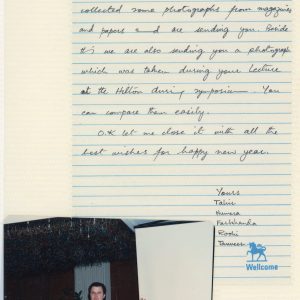 collected some photographs from magazines
and papers and are sending you. Beside
this we are also sending you a photograph
which was taken during your Lecture
at the Hilton during symposium. You
can compare them easily.
O.K let me close it with all the
best wishes for happy new year.
Yours
Tahir
Farkhanda
Roohi
Tanveer
Wellcome